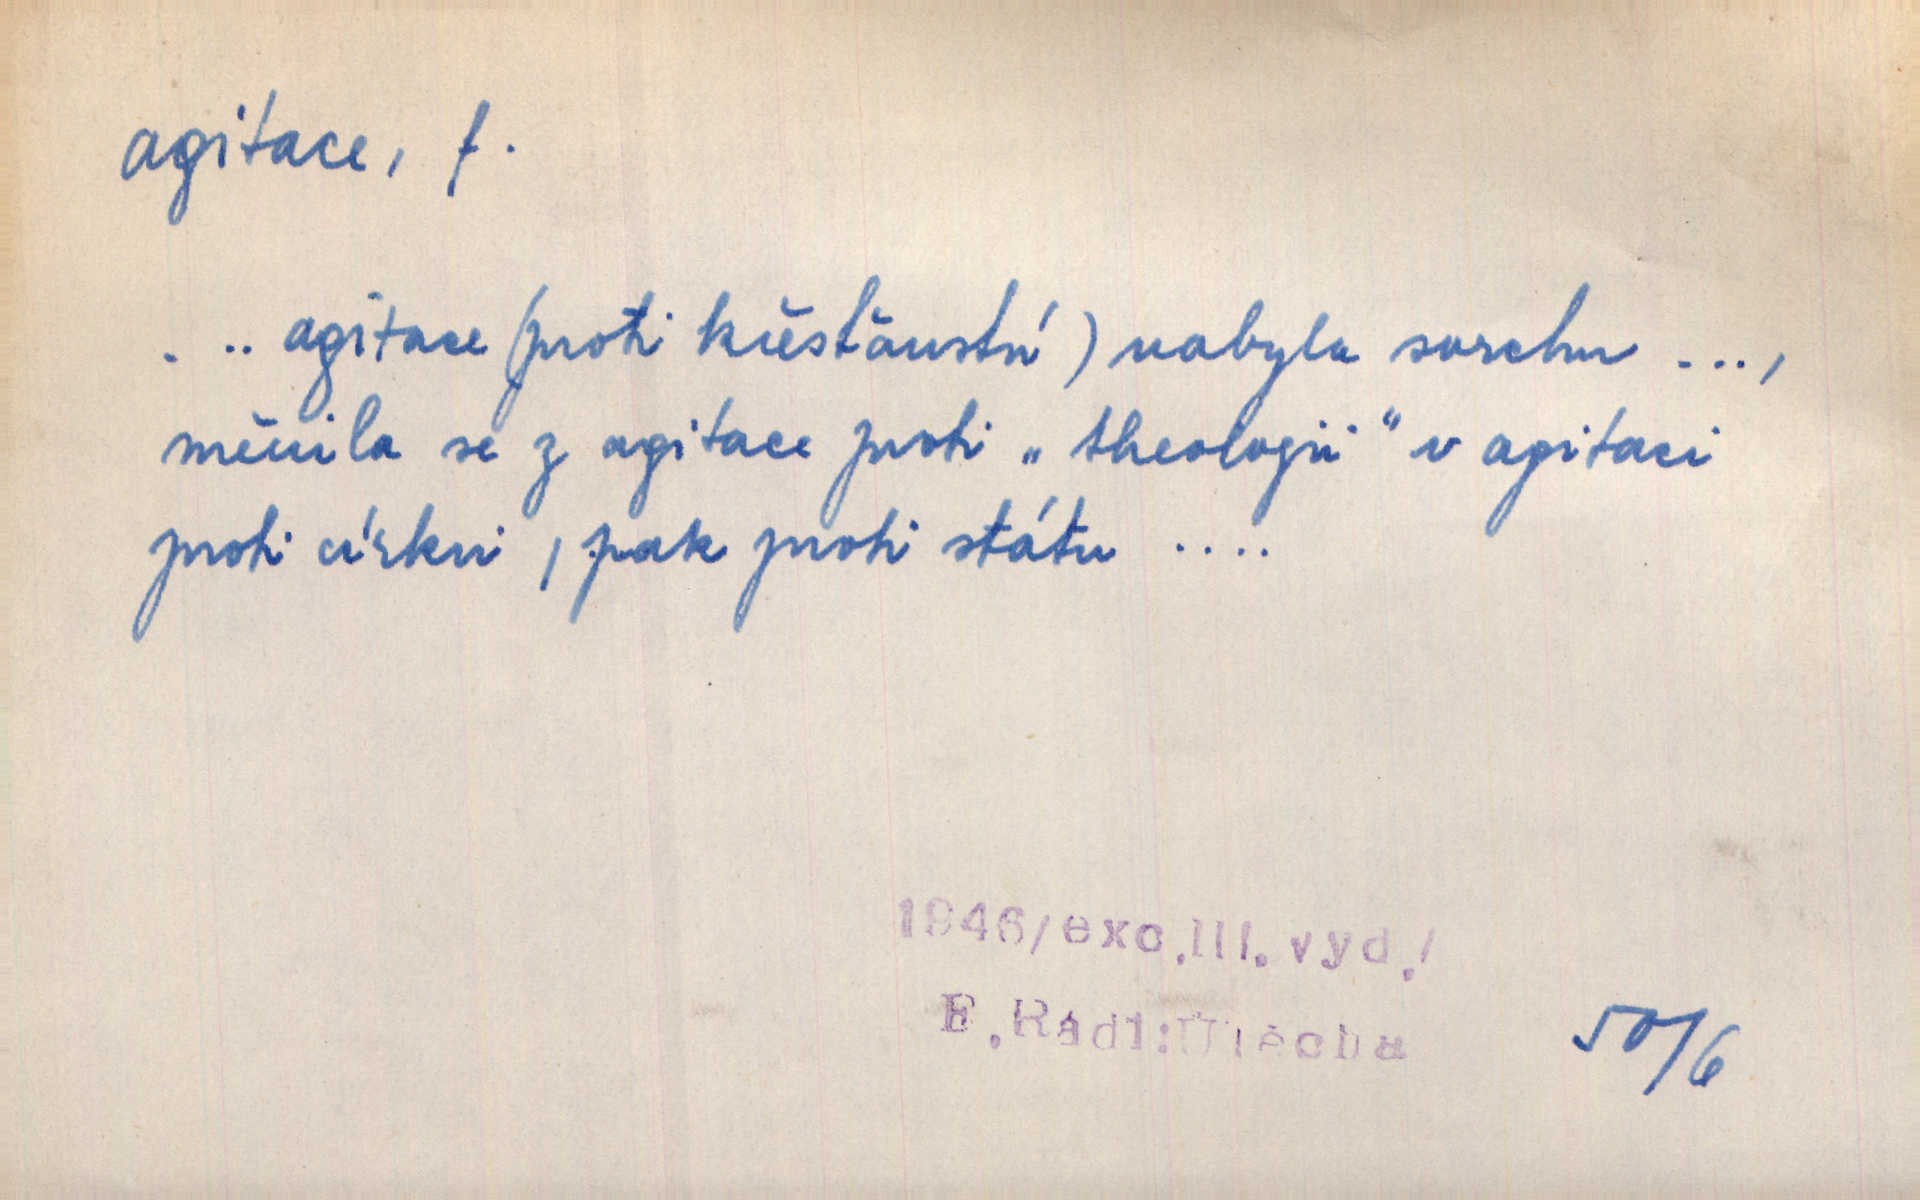 agitace, f.
... agitace (proti křesťanství) nabyla svrchu ...,
měnila se z agitace proti „theologii“ v agitaci
proti církvi, pak proti státu ....
1946/exc.III.vyd./
E.Rádl:Útěcha
50/6